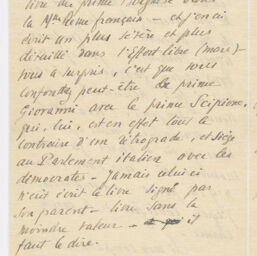 livre du prime Borghèse dans
la Nlle Revue française – et j'en ai
écrit un plus sévère et plus
détaillé dans l'Effort libre (mars) –
vous a surpris, c'est que vous
confondez peut-être le prince
Giovanni avec le prince Scipione,
qui, lui, est en effet tout le
contraire d'un rétrograde, et siège
au Parlement italien avec les
démocrates – Jamais celui-ci
n'eût écrit le livre signé par
son parent – livre sans la
moindre valeur – il
faut le dire.